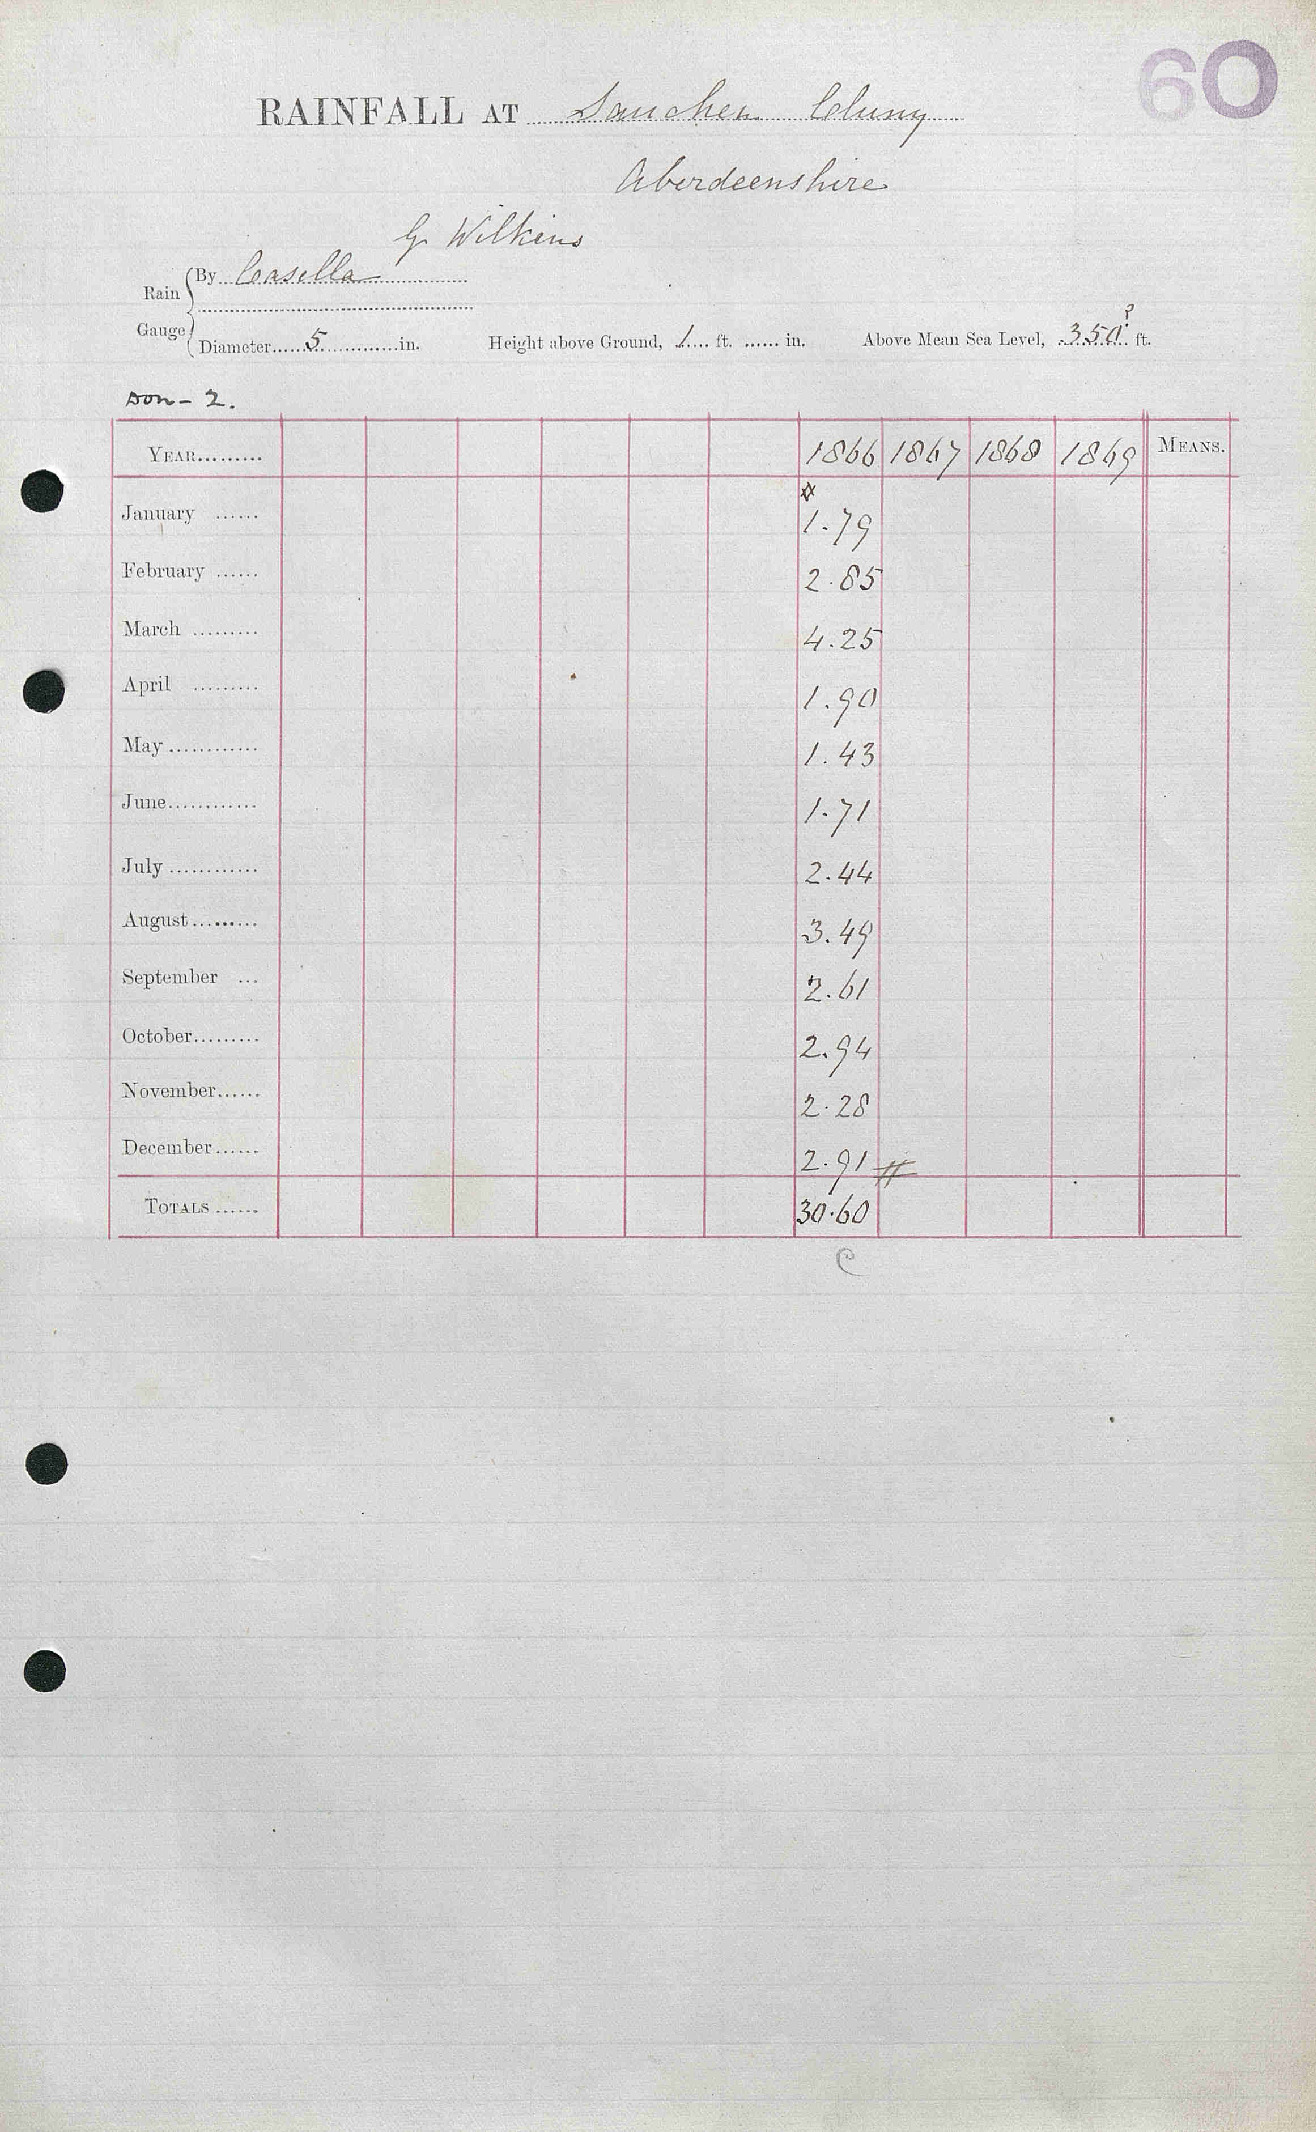 60
RAINFALL AT Sauchen Cluny
Aberdeenshire
G Wilkins
Rain Gauge { By Casella
Diameter......5..............in. Height above Ground, 1.... ft. ...... in. Above Mean Sea Level, 350? ft.
Don - 2.
YEAR......... 1866 1867 1868 1869 MEANS.
January ...... 1.79
February ...... 2.85
March ......... 4.25
April ......... 1.90
May ............ 1.43
June............ 1.71
July ............ 2.44
August ......... 3.49
September ... 2.61
October......... 2.94
November...... 2.28
December...... 2.91 #
TOTALS ...... 30.60
C